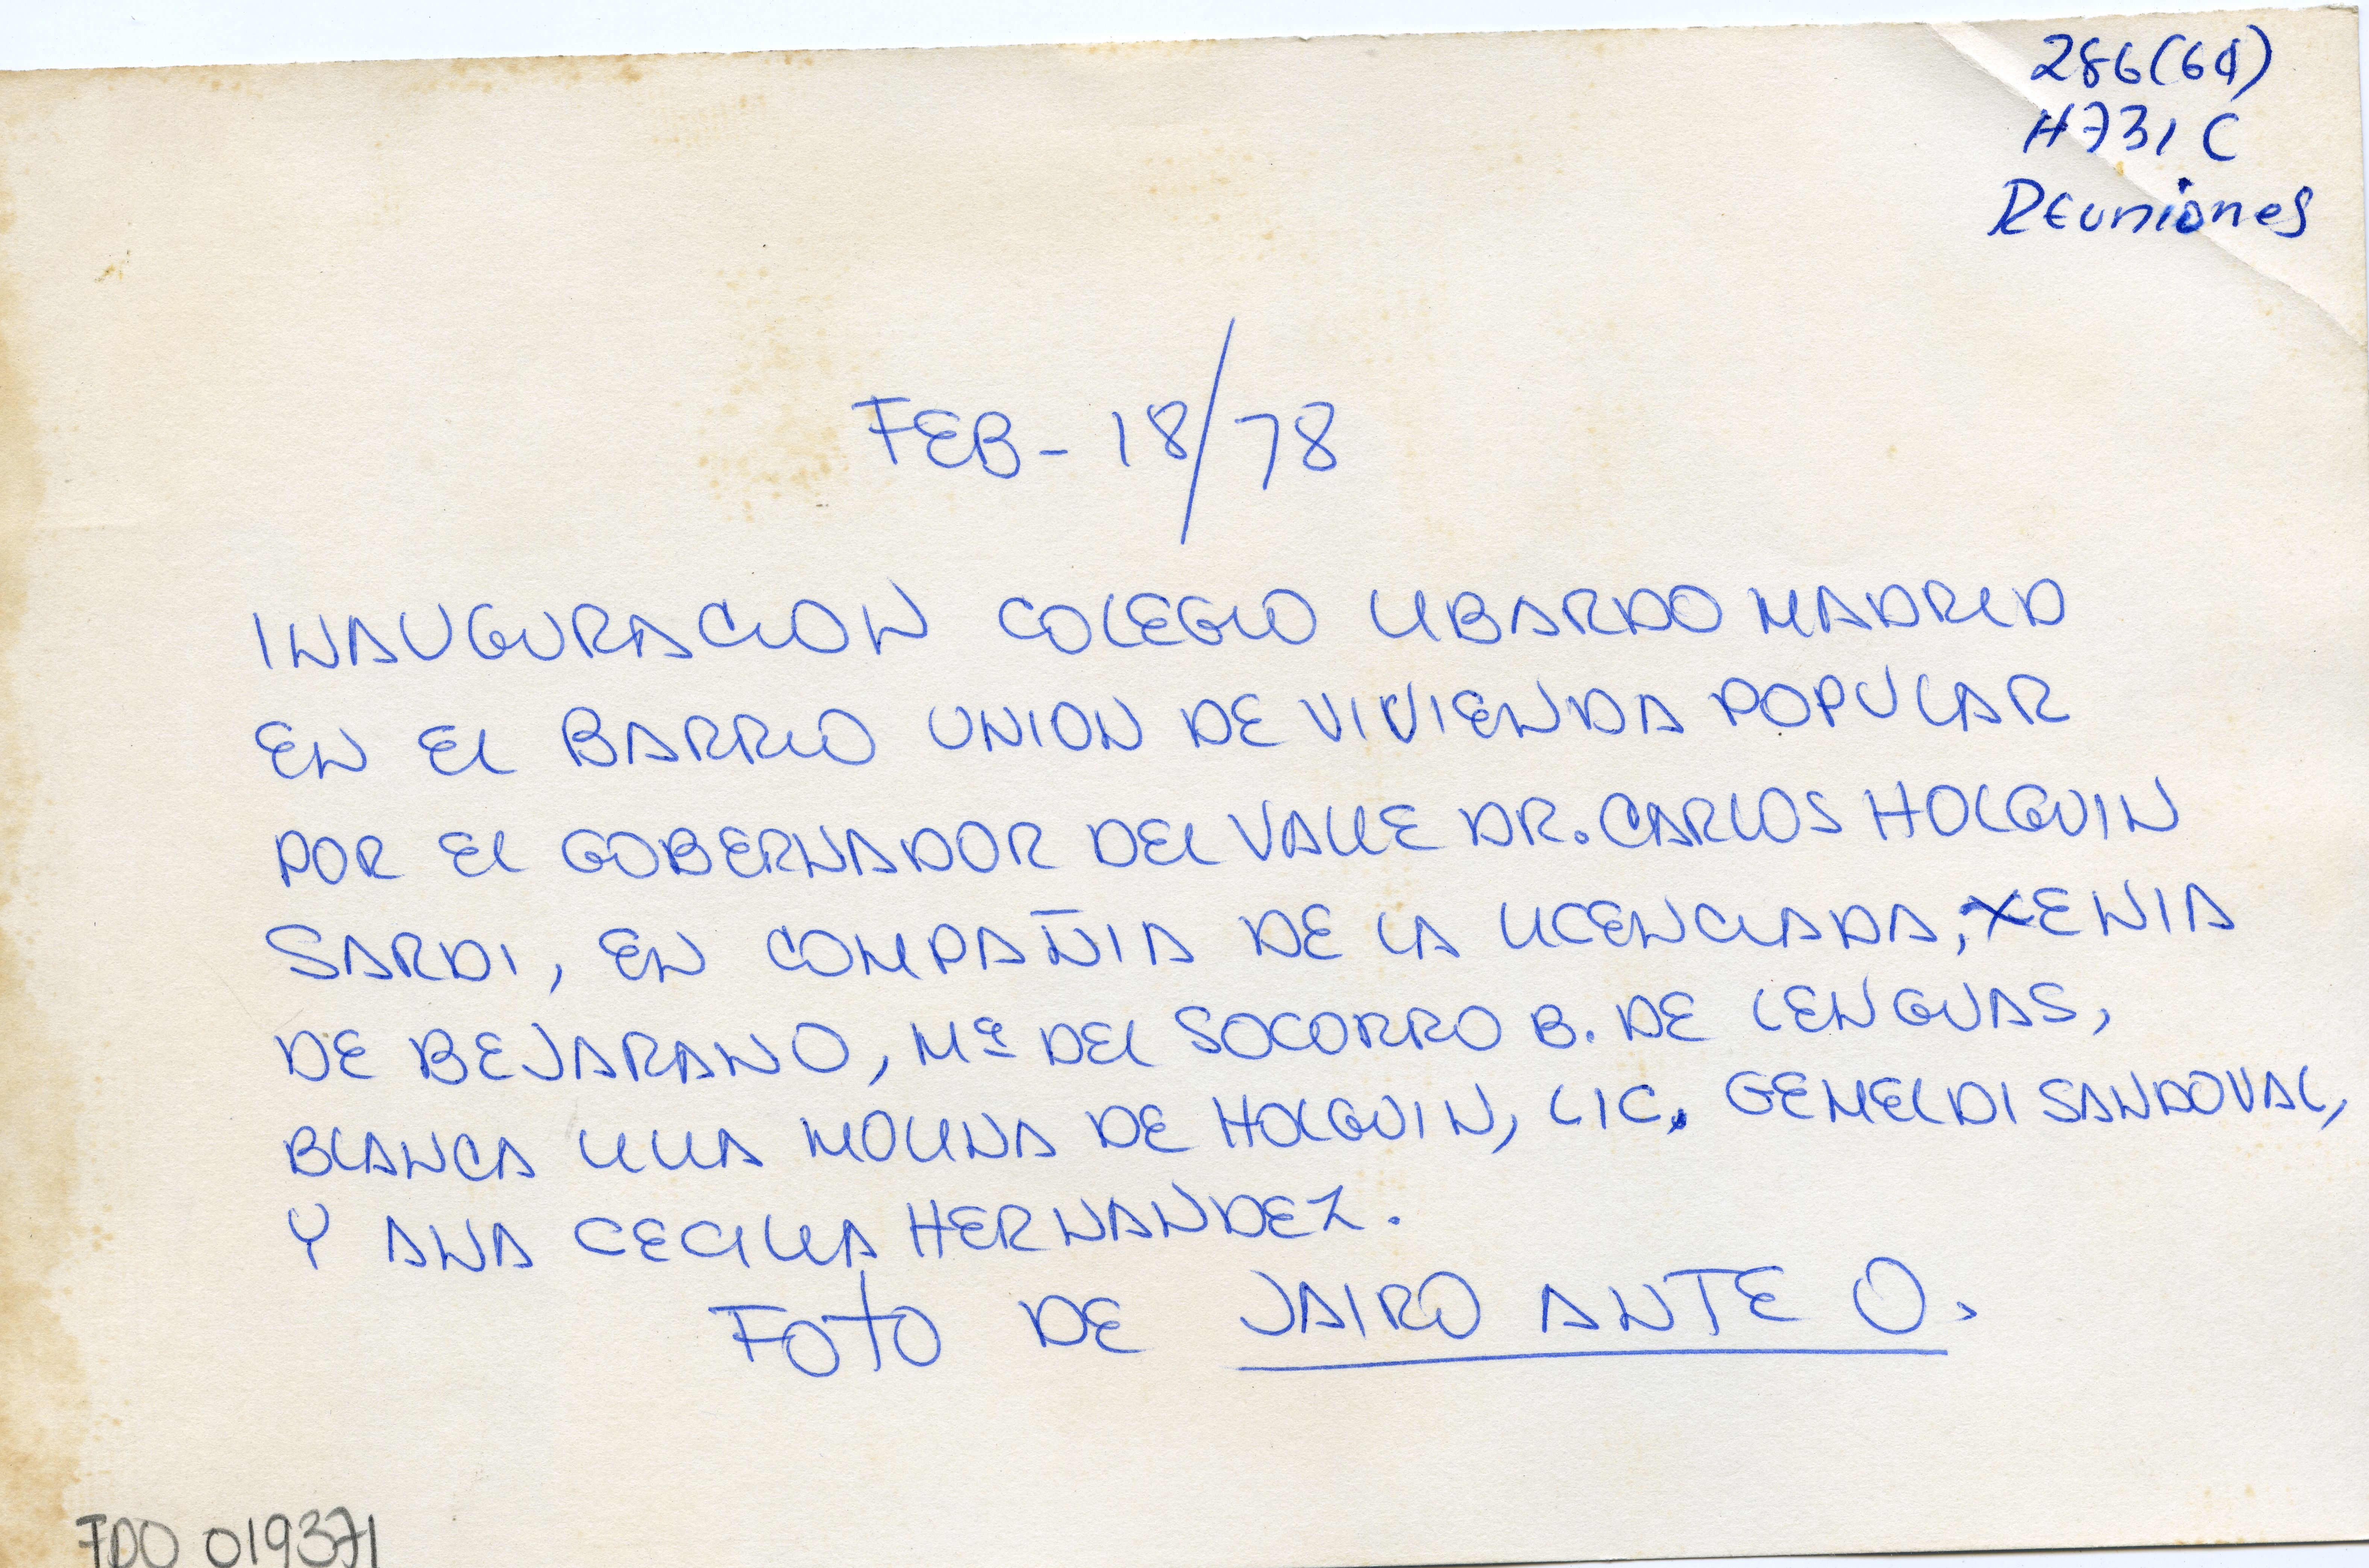 286(64)
H731C
Reuniones
FEB - 18/78
INAUGURACION COLEGIO LIBARDO MADRID
EN EL BARRIO UNION DE VIVIENDA POPULAR
POR EL GOBERNADOR DEL VALLE DR. CARLOS HOLGUIN
SARDI, EN COMPAÑIA DE LA LICENCIADA, XENIA
DE BEJARANO, Mª DEL SOCORRO B. DE LENGUAS,
BLANCA LILIA MOLINA DE HOLGUIN, LIC. GEMELDI SANDOVAL,
Y ANA CECILIA HERNANDEZ.
FOTO DE JAIRO ANTE O.
FDO 019371